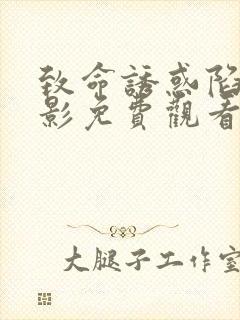 致命誘惑陷
影免費觀看
大腿子工作室